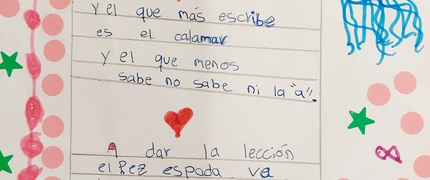 y el que más escribe
es el calamar
y el que menos
sabe no sabe ni la "a".
A dar la lección
el Pez espada va